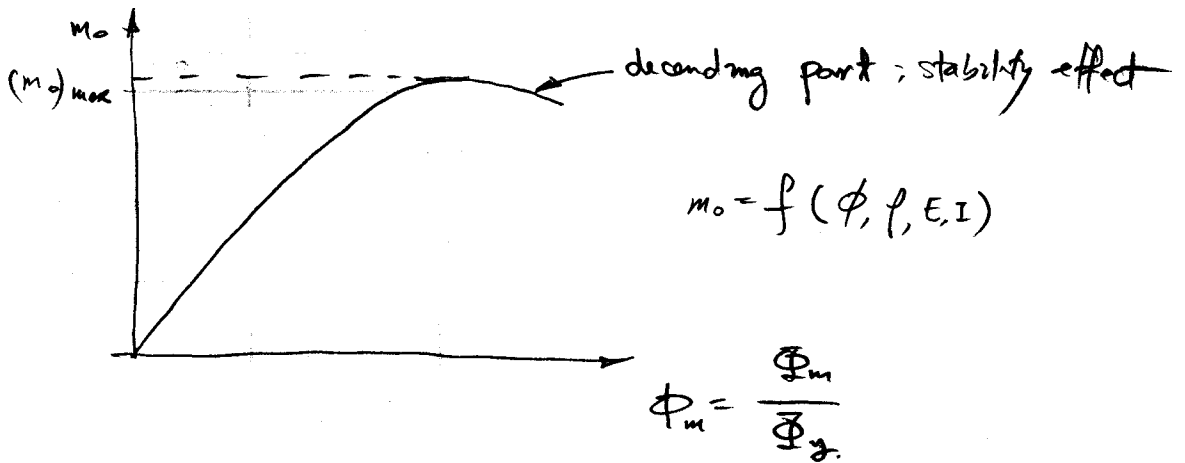 m₀
(m₀)max
decending part ; stability effect
m₀ = f ( ϕ, ρ, E, I )
ϕm = Φm / Φy.